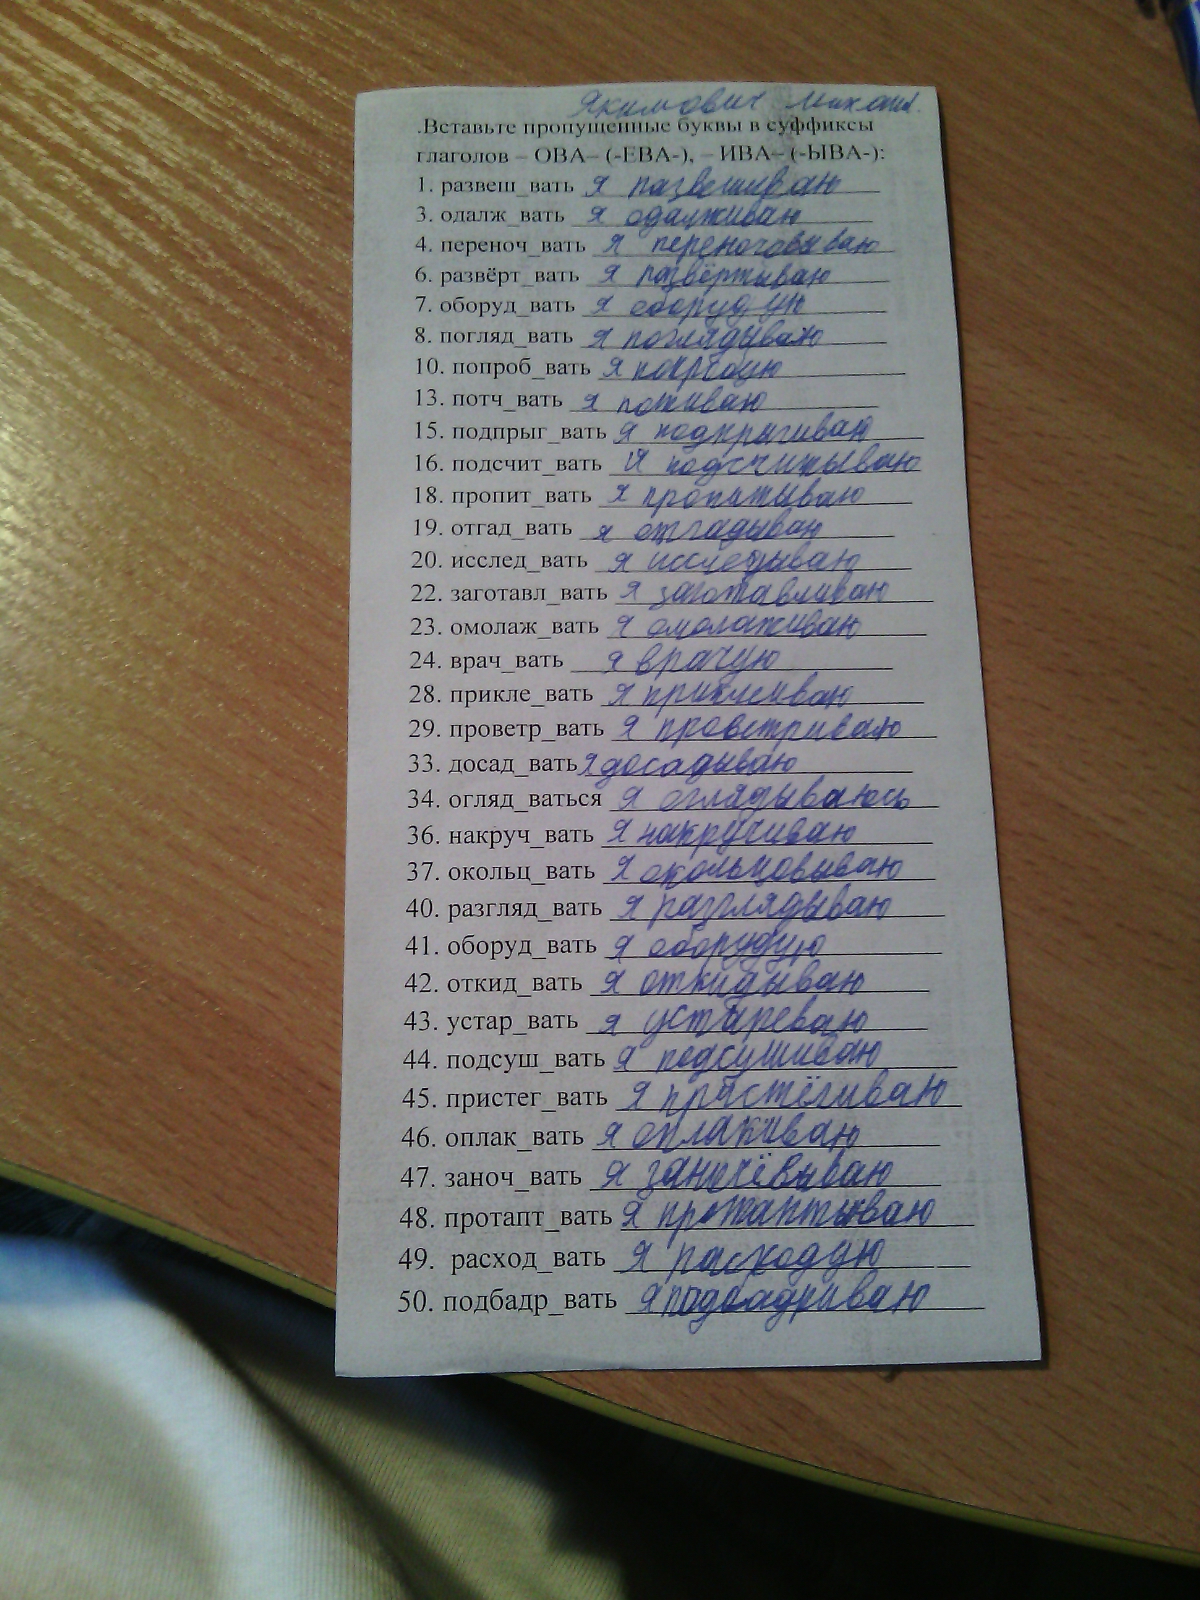 Якимович Михаил.
.Вставьте пропущенные буквы в суффиксы
глаголов – ОВА– (-ЕВА-), – ИВА– (-ЫВА-):
1. развеш_вать я развешиваю
3. одалж_вать я одалживаю
4. переноч_вать я переночовываю
6. развёрт_вать я развёртываю
7. оборуд_вать я оборудую
8. погляд_вать я поглядываю
10. попроб_вать я попробую
13. потч_вать я потживаю
15. подпрыг_вать я подпрыгиваю
16. подсчит_вать я подсчитываю
18. пропит_вать я пропитываю
19. отгад_вать я отгадываю
20. исслед_вать я исследываю
22. заготавл_вать я заготавливаю
23. омолаж_вать я омолаживаю
24. врач_вать я врачую
28. прикле_вать я приклеиваю
29. проветр_вать я проветриваю
33. досад_вать я досадываю
34. огляд_ваться я оглядываюсь
36. накруч_вать я накручиваю
37. окольц_вать я окольцовываю
40. разгляд_вать я разглядываю
41. оборуд_вать я оборудую
42. откид_вать я откидываю
43. устар_вать я устареваю
44. подсуш_вать я подсушиваю
45. пристег_вать я пристёгиваю
46. оплак_вать я оплакиваю
47. заноч_вать я заночёвываю
48. протапт_вать я протаптываю
49. расход_вать я расходую
50. подбадр_вать я подбадриваю